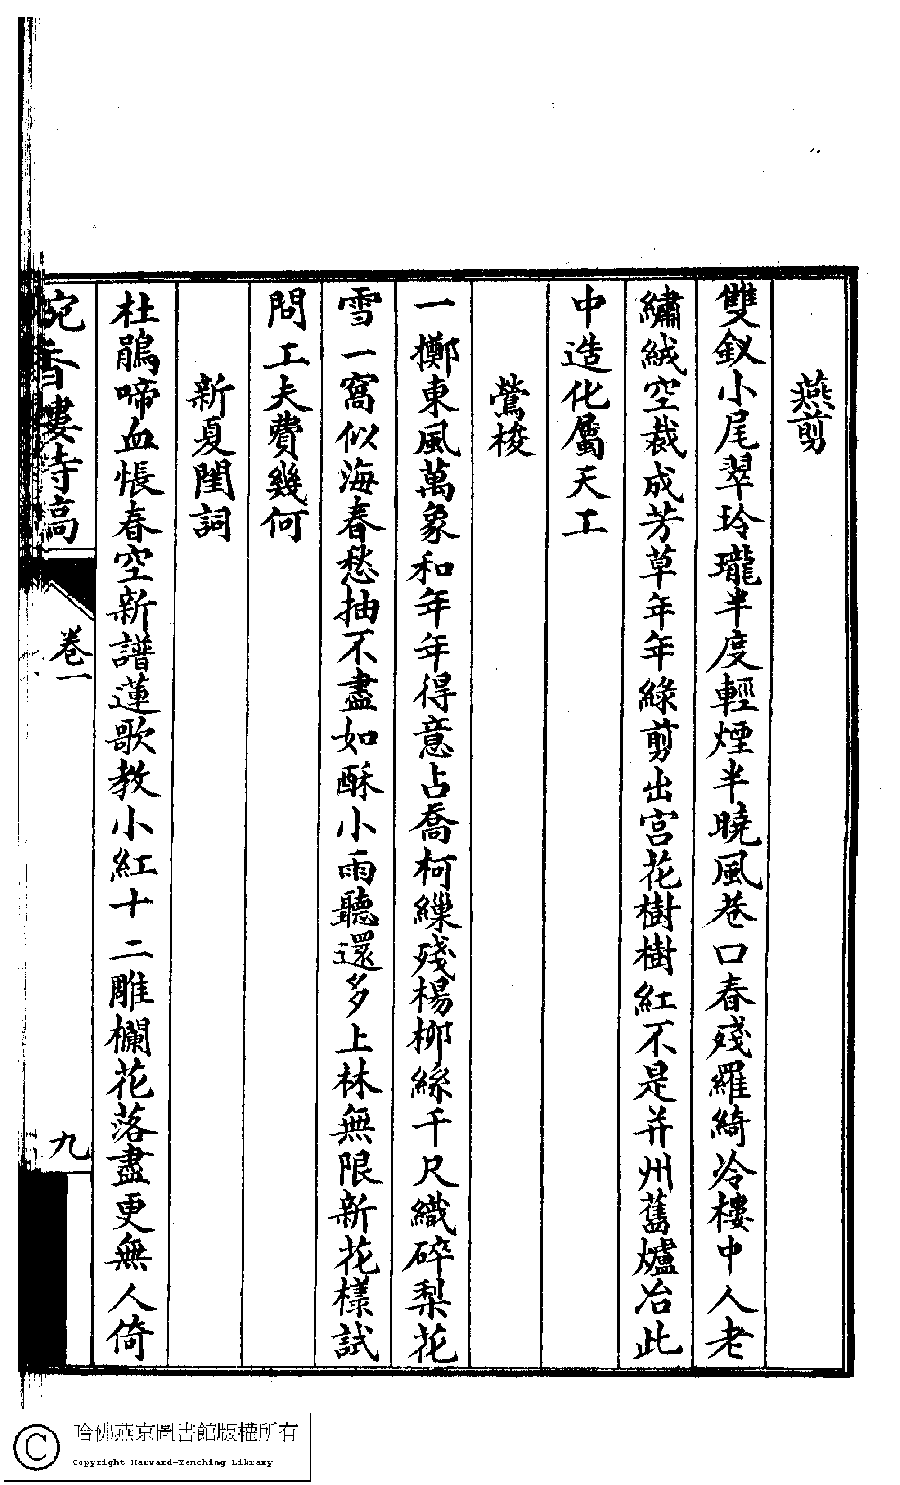 燕剪
雙釵小尾翠玲瓏半度輕煙半曉風巷口春殘羅綺冷樓中人老
繡絨空裁成芳草年年綠剪出宮花樹樹紅不是并州舊爐冶此
中造化屬天工
鶯梭
一擲東風萬象和年年得意占喬柯繰殘楊柳絲千尺織碎梨花
雪一窩似海春愁抽不盡如酥小雨聽還多上林無限新花樣試
問工夫費幾何
新夏閨詞
杜鵑啼血悵春空新譜蓮歌教小紅十二雕欄花落盡更無人倚
宛香樓詩稿
卷一
九
哈佛燕京圖書館版權所有
Copyright Harvard-Yenching Library